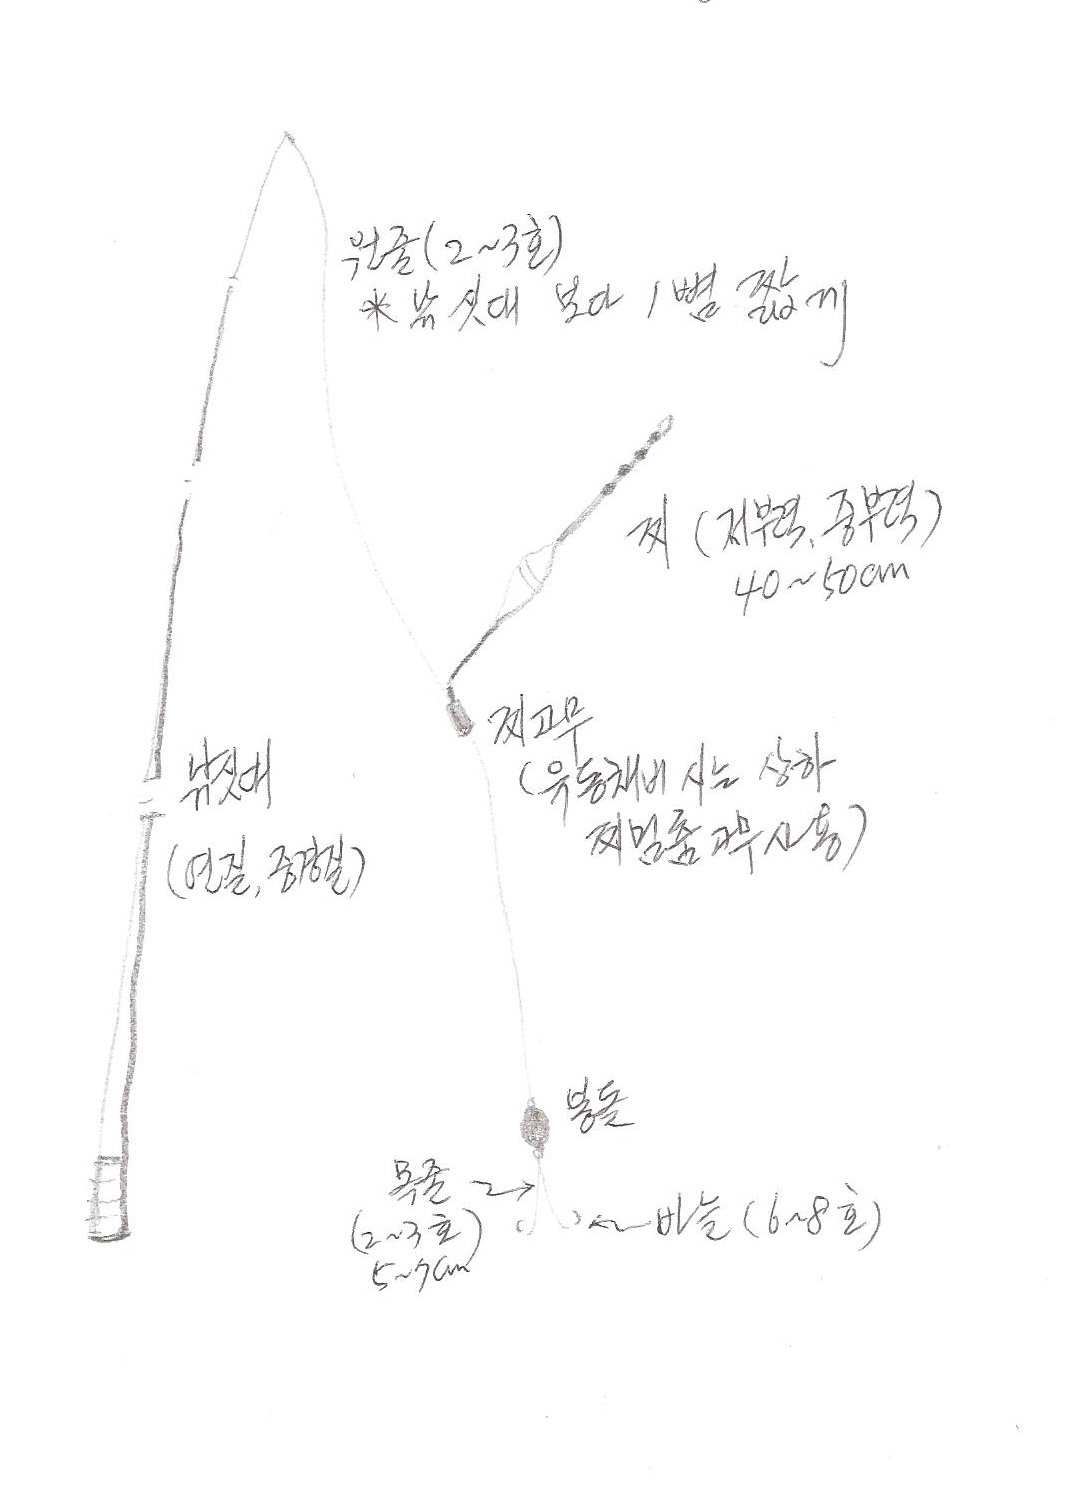 원줄(2~3호)
* 낚싯대 보다 1뼘 짧게
찌 (저부력, 중부력)
40~50cm
찌고무
(유동채비 시는 상하
찌멈춤고무 사용)
낚싯대
(연질, 중경질)
봉돌
목줄
(2~3호)
5~7cm
바늘 (6~8호)